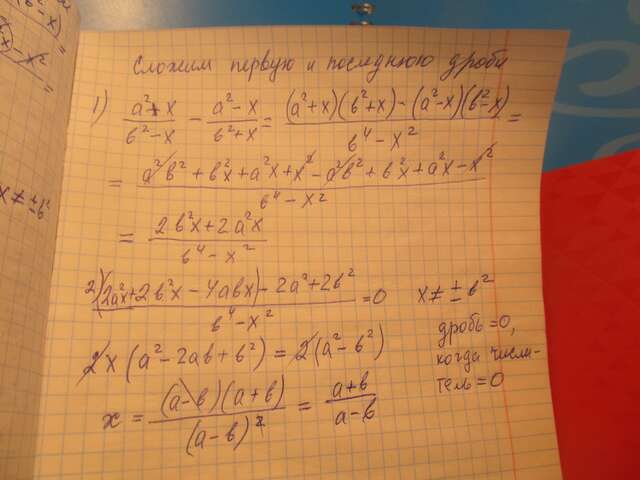 Сложим первую и последнюю дроби
1) (a²+x)/(b²-x) - (a²-x)/(b²+x) = ((a²+x)(b²+x)-(a²-x)(b²-x))/(b⁴-x²) =
= (a²b²+b²x+a²x+x²-a²b²+b²x+a²x-x²)/(b⁴-x²)
= (2b²x+2a²x)/(b⁴-x²)
2) ((2a²x+2b²x-4abx)-2a²+2b²)/(b⁴-x²) = 0 x≠±b²
2x(a²-2ab+b²)=2(a²-b²)
x = ((a-b)(a+b))/(a-b)² = (a+b)/(a-b)
дробь=0,
когда числи-
тель=0
x≠±b²